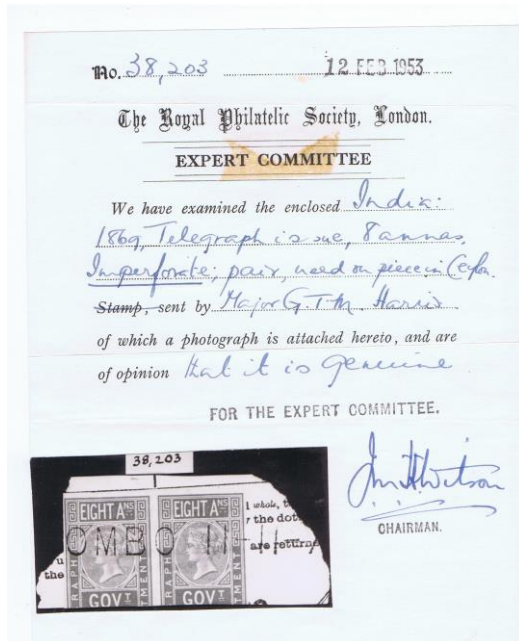 No. 38,203 12 FEB 1953
The Royal Philatelic Society, London.
EXPERT COMMITTEE
We have examined the enclosed India:
1869, Telegraph issue, 8 annas,
Imperforate; pair, used on piece in Ceylon.
Stamp, sent by Major G.T.M. Harris
of which a photograph is attached hereto, and are
of opinion that it is genuine
FOR THE EXPERT COMMITTEE.
CHAIRMAN.
38,203
EIGHT AS EIGHT AS
whole,
the dot
OMBO 11-11
are returne
the
GOVT GOVT